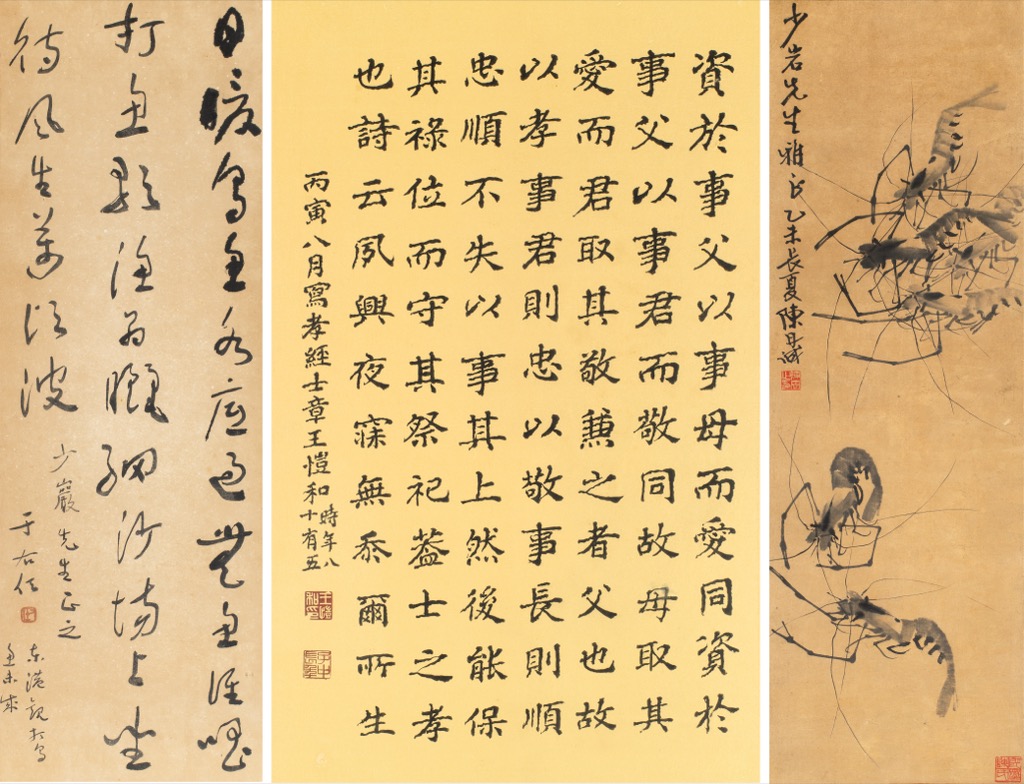 少岩先生雅正乙未長夏陳丹誠
資於事父以事母而愛同資於
事父以事君而敬同故母取其
愛而君取其敬兼之者父也故
以孝事君則忠以敬事長則順
忠順不失以事其上然後能保
其祿位而守其祭祀蓋士之孝
也詩云夙興夜寐無忝爾所生
丙寅八月寫孝經士章王愷和時年八
十有五
日暖烏魚水底過無魚誰唱
打魚歌漁翁曬網沙場上坐
待風生萬頃波
少巖先生正之
于右任
東港觀打烏
魚未成